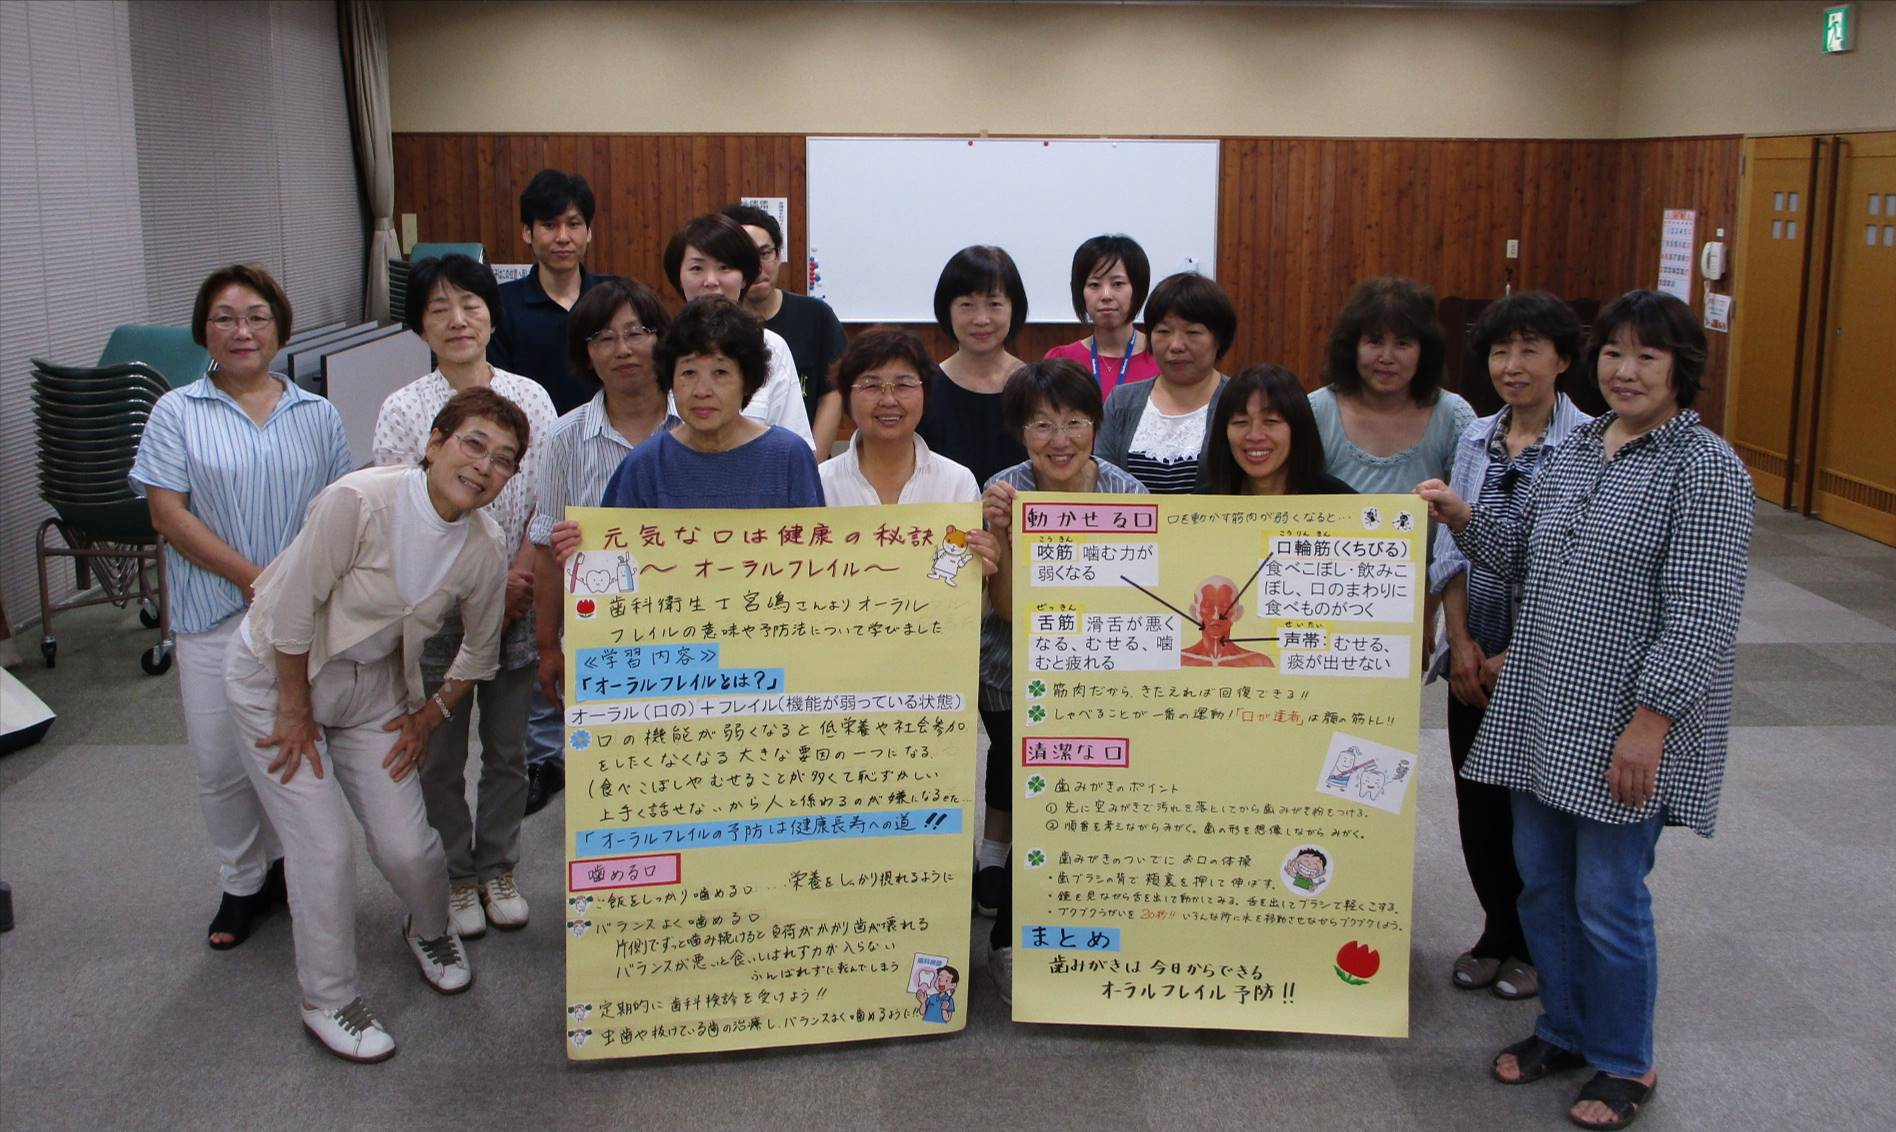 元気な口は健康の秘訣
～オーラルフレイル～
歯科衛生士宮嶋さんよりオーラル
フレイルの意味や予防法について学びました
≪学習内容≫
「オーラルフレイルとは？」
オーラル(口の)＋フレイル(機能が弱っている状態)
口の機能が弱くなると低栄養や社会参加
をしたくなくなる大きな要因の一つになる。
(食べこぼしやむせることが多くて恥ずかしい
上手く話せないから人と係わるのが嫌になるetc…
「オーラルフレイルの予防は健康長寿への道!!
噛める口
ご飯をしっかり噛める口…栄養をしっかり摂れるように
バランスよく噛める口
片側でずっと噛み続けると負荷がかかり歯が壊れる
バランスが悪いと食いしばれず力が入らない
ふんばれずに転んでしまう
定期的に歯科検診を受けよう!!
虫歯や抜けている歯の治療し、バランスよく噛めるように!!
動かせる口
口を動かす筋肉が弱くなると…
こうきん
咬筋 噛む力が
弱くなる
こうりんきん
口輪筋(くちびる)
食べこぼし・飲みこ
ぼし、口のまわりに
食べものがつく
ぜっきん
舌筋 滑舌が悪く
なる、むせる、噛
むと疲れる
せいたい
声帯：むせる、
痰が出せない
筋肉だから、きたえれば回復できる!!
しゃべることが一番の運動！「口が達者」は顔の筋トレ!!
清潔な口
歯みがきのポイント
① 先に空みがきで汚れを落としてから歯みがき粉をつける。
② 順番を考えながらみがく。歯の形を想像しながらみがく。
歯みがきのついでにお口の体操
・歯ブラシの背で頬裏を押して伸ばす。
・鏡を見ながら舌を出して動かしてみる。舌を出してブラシで軽くこする。
・ブクブクうがいを20秒!! いろんな所に水を移動させながらブクブクしよう。
まとめ
歯みがきは今日からできる
オーラルフレイル予防!!